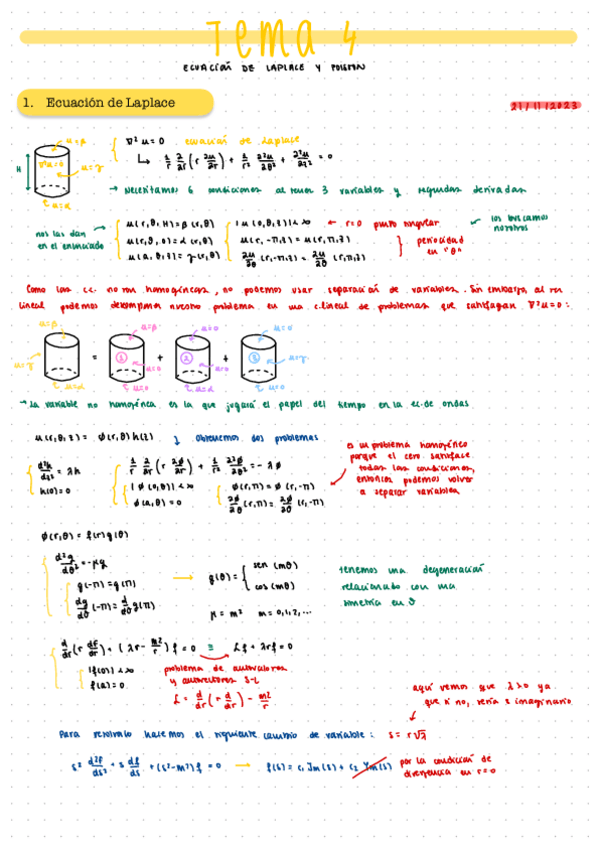 Tema 4
ECUACIÓN DE LAPLACE Y POISSON
1. Ecuación de Laplace
21/11/2023
u=β
∇²u=0
u=γ
u=α
H
∇²u=0 ecuación de Laplace
↳ 1/r ∂/∂r (r ∂u/∂r) + 1/r² ∂²u/∂θ² + ∂²u/∂z² = 0
→ Necesitamos 6 condiciones al tener 3 variables y segundas derivadas
nos las dan
en el enunciado
u(r,θ,H)=β(r,θ)
u(r,θ,0)=α(r,θ)
u(a,θ,z)=γ(r,θ)
|u(0,θ,z)|<∞ ← r=0 punto singular
u(r,-π,z)=u(r,π,z)
∂u/∂θ (r,-π,z)= ∂u/∂θ (r,π,z)
periocidad
en "θ"
los buscamos
nosotros
Como las c.c. no son homogéneas, no podemos usar separación de variables. Sin embargo, al ser
lineal podemos descomponer nuestro problema en una c.lineal de problemas que satisfagan ∇²u=0:
u=β
u=γ
u=α
=
u=β
1
u=0
u=0
+
u=0
2
u=0
u=α
+
u=0
3
u=γ
u=0
→ La variable no homogénea es la que jugará el papel del tiempo en la ec. de ondas
u(r,θ,z) = ϕ(r,θ)h(z) ⤵ obtenemos dos problemas
d²h/dz² = λh
h(0)=0
1/r ∂/∂r (r ∂ϕ/∂r) + 1/r² ∂²ϕ/∂θ² = -λϕ
|ϕ(0,θ)|<∞
ϕ(a,θ)=0
ϕ(r,π)=ϕ(r,-π)
∂ϕ/∂θ (r,π)= ∂ϕ/∂θ (r,-π)
es un problema homogéneo
porque el cero satisface
todas las condiciones,
entonces podemos volver
a separar variables
ϕ(r,θ)= f(r)g(θ)
d²g/dθ² = -μg
g(-π)=g(π)
dg/dθ (-π)= d/dθ g(π)
→ g(θ)= { sen (mθ)
cos(mθ)
μ = m² m=0,1,2,...
tenemos una degeneración
relacionado con una
simetría en θ
d/dr (r df/dr) + (λr - m²/r) f = 0 ≡ Lf + λrf = 0
|f(0)|<∞
f(a)=0
problema de autovalores
y autovectores S-L
L = d/dr (r d/dr) - m²/r
aquí vemos que λ>0 ya
que si no, sería s imaginario
Para resolverlo hacemos el siguiente cambio de variable: s = r√λ
s² d²f/ds² + s df/ds + (s²-m²)f = 0 → f(s) = c₁ Jm(s) + c₂ Ym(s)
por la condición de
divergencia en r=0